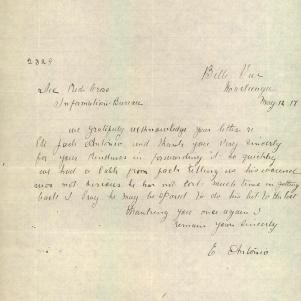 2329
Belle Vue
May 12 17
The Red Cross
Information Bureau
we gratefully acknowledge your letter re
Pte Jack Antonio and thank you very sincerely
for your kindness in forwarding it so quickly
we had a cable from Jack telling us his wound
was not serious he has not lost much time in getting
back I pray he may be spared to do his bit to the last
thanking you once again I
remain yours sincerely
E Antonio